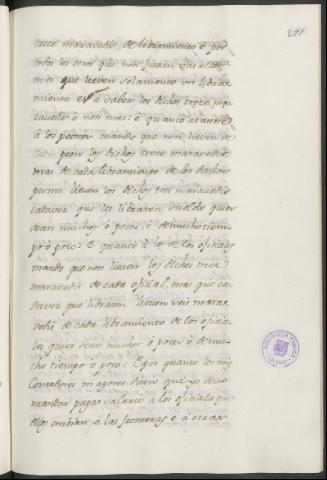 291
trece maravedis, de libramiento é por
todos los otros que non fueren Vasallos
mios que lieven solamente un libra
miento es á saber los dichos trece ma
ravedis é non mas: é quanto atañe
á los peones mando que non lieven de
cada peon los dichos trece maravedis,
mas de cada libramiento de los dichos
peones lieven los dichos tres maravedis
cada vez que les libraren sueldo quier
sean muchos ó pocos, ó de mucho tiem
po ó poco: E quanto á lo de los oficiales
mando que non lieven los dichos trece
maravedis de cada oficial, mas que ca
da vez que libraren lieven seis mara
vedis de cada libramiento de los oficia
les quier sean muchos ó pocos ó de mu
cho tiempo ó poco: E por quanto los mis
Contadores mayores dicen que yo devo
mandar pagar salarios a los oficiales que
ellos embian á las fronteras é á otras
BIBLIOTECA PUBLICA
TOLEDO